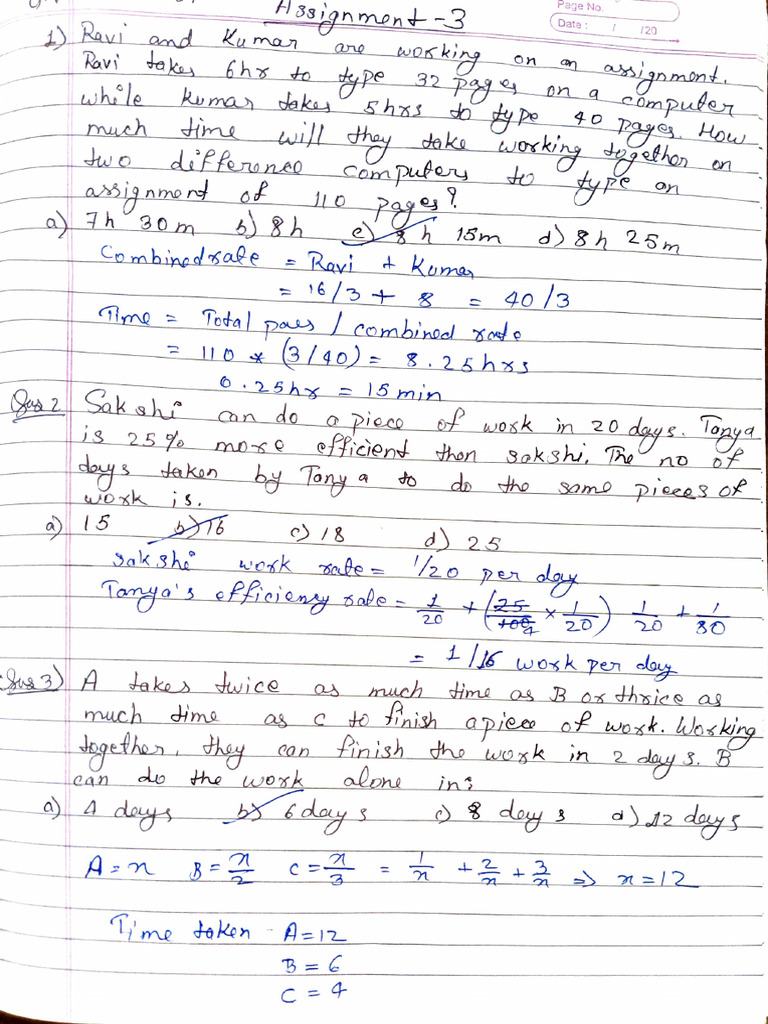 Assignment-3
Page No.
Date : / /20
1) Ravi and Kumar are working on an assignment.
Ravi takes 6hr to type 32 pages on a computer
while kumar takes 5hrs to type 40 pages. How
much time will they take working together on
two difference computers to type an
assignment of 110 pages?
a) 7h 30m b) 8h c) 8h 15m d) 8h 25m
Combined rate = Ravi + Kumar
= 16/3 + 8 = 40/3
Time = Total paes / combined rate
= 110 * (3/40) = 8.25hrs
0.25hr = 15 min
Qus 2 Sakshi can do a piece of work in 20 days. Tanya
is 25% more efficient then sakshi. The no of
days taken by Tanya to do the same pieces of
work is.
a) 15 b) 16 c) 18 d) 25
sakshi work rate = 1/20 per day
Tanya's efficiensy rate = 1/20 + (25/100 4 × 1/20) 1/20 + 1/80
= 1/16 work per day
Qus 3) A takes twice as much time as B or thrice as
much time as C to finish a piece of work. Working
together, they can finish the work in 2 days. B
can do the work alone in:
a) 4 days b) 6 days c) 8 days d) 12 days
A = x B = x/2 C = x/3 = 1/x + 2/x + 3/x => x = 12
Time taken - A = 12
B = 6
C = 4